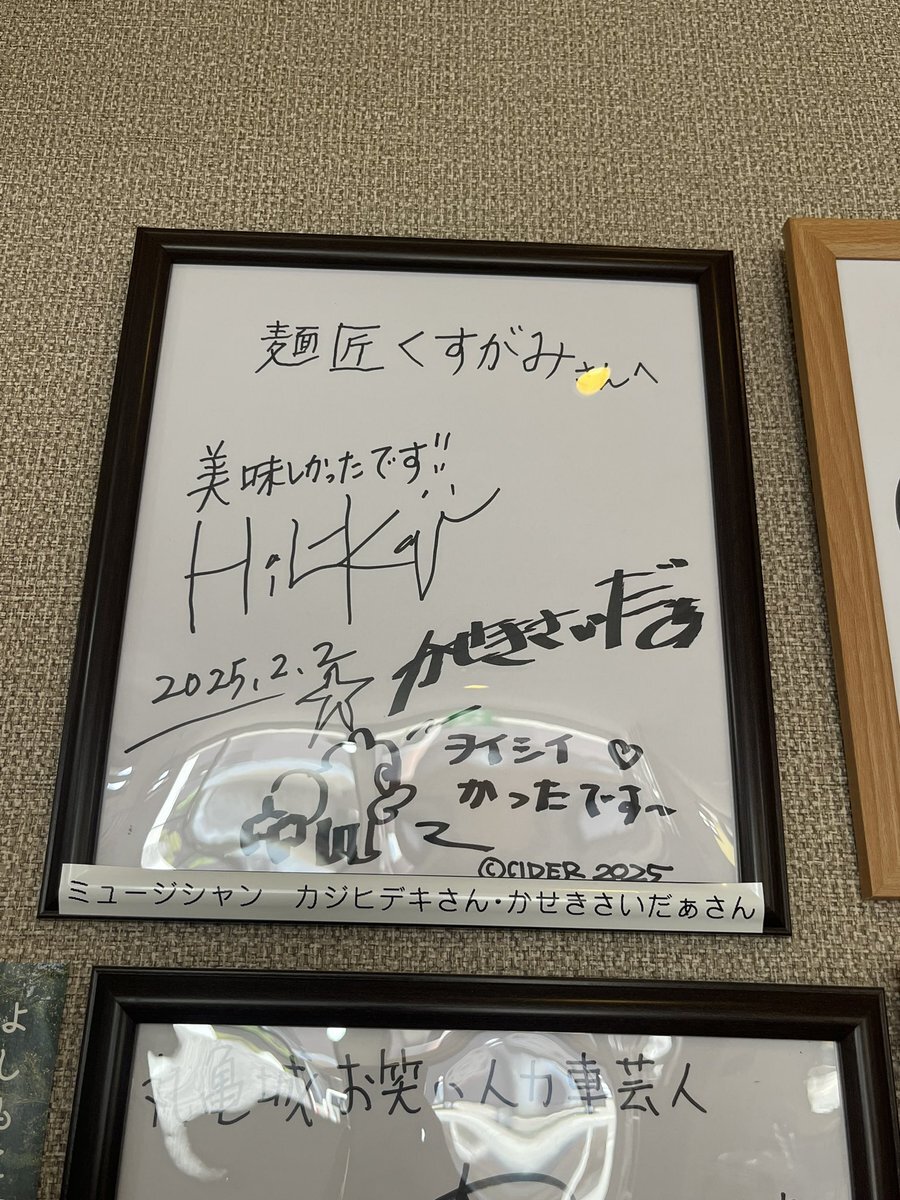 麺匠くすがみさんへ
美味しかったです!!
Hideki Kaji
2025.2.2
かせきさいだぁ
ヲイシイ♡
かったです〜
©CIDER 2025
ミュージシャン カジヒデキさん・かせきさいだぁさん
丸亀城お笑い人力車芸人
よしも